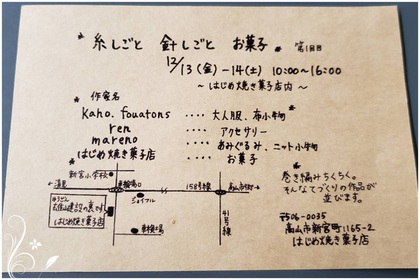 糸しごと 針しごと お菓子 第1回目
12/13(金)-14(土) 10:00~16:00
~はじめ焼き菓子店内~
作家名
Kaho. fouatons ‥‥ 大人服、布小物
ren ‥‥ アクセサリー
mareno ‥‥ あみぐるみ、ニット小物
はじめ焼き菓子店 ‥‥ お菓子
新宮小学校
←清見
158号線
高山市街→
ジョイフル
41号線
はじめ焼き菓子店
巻き編みちくちく。
そんなてづくりの作品が
並びます。
〒506-0035
高山市新宮町1165-2
はじめ焼き菓子店